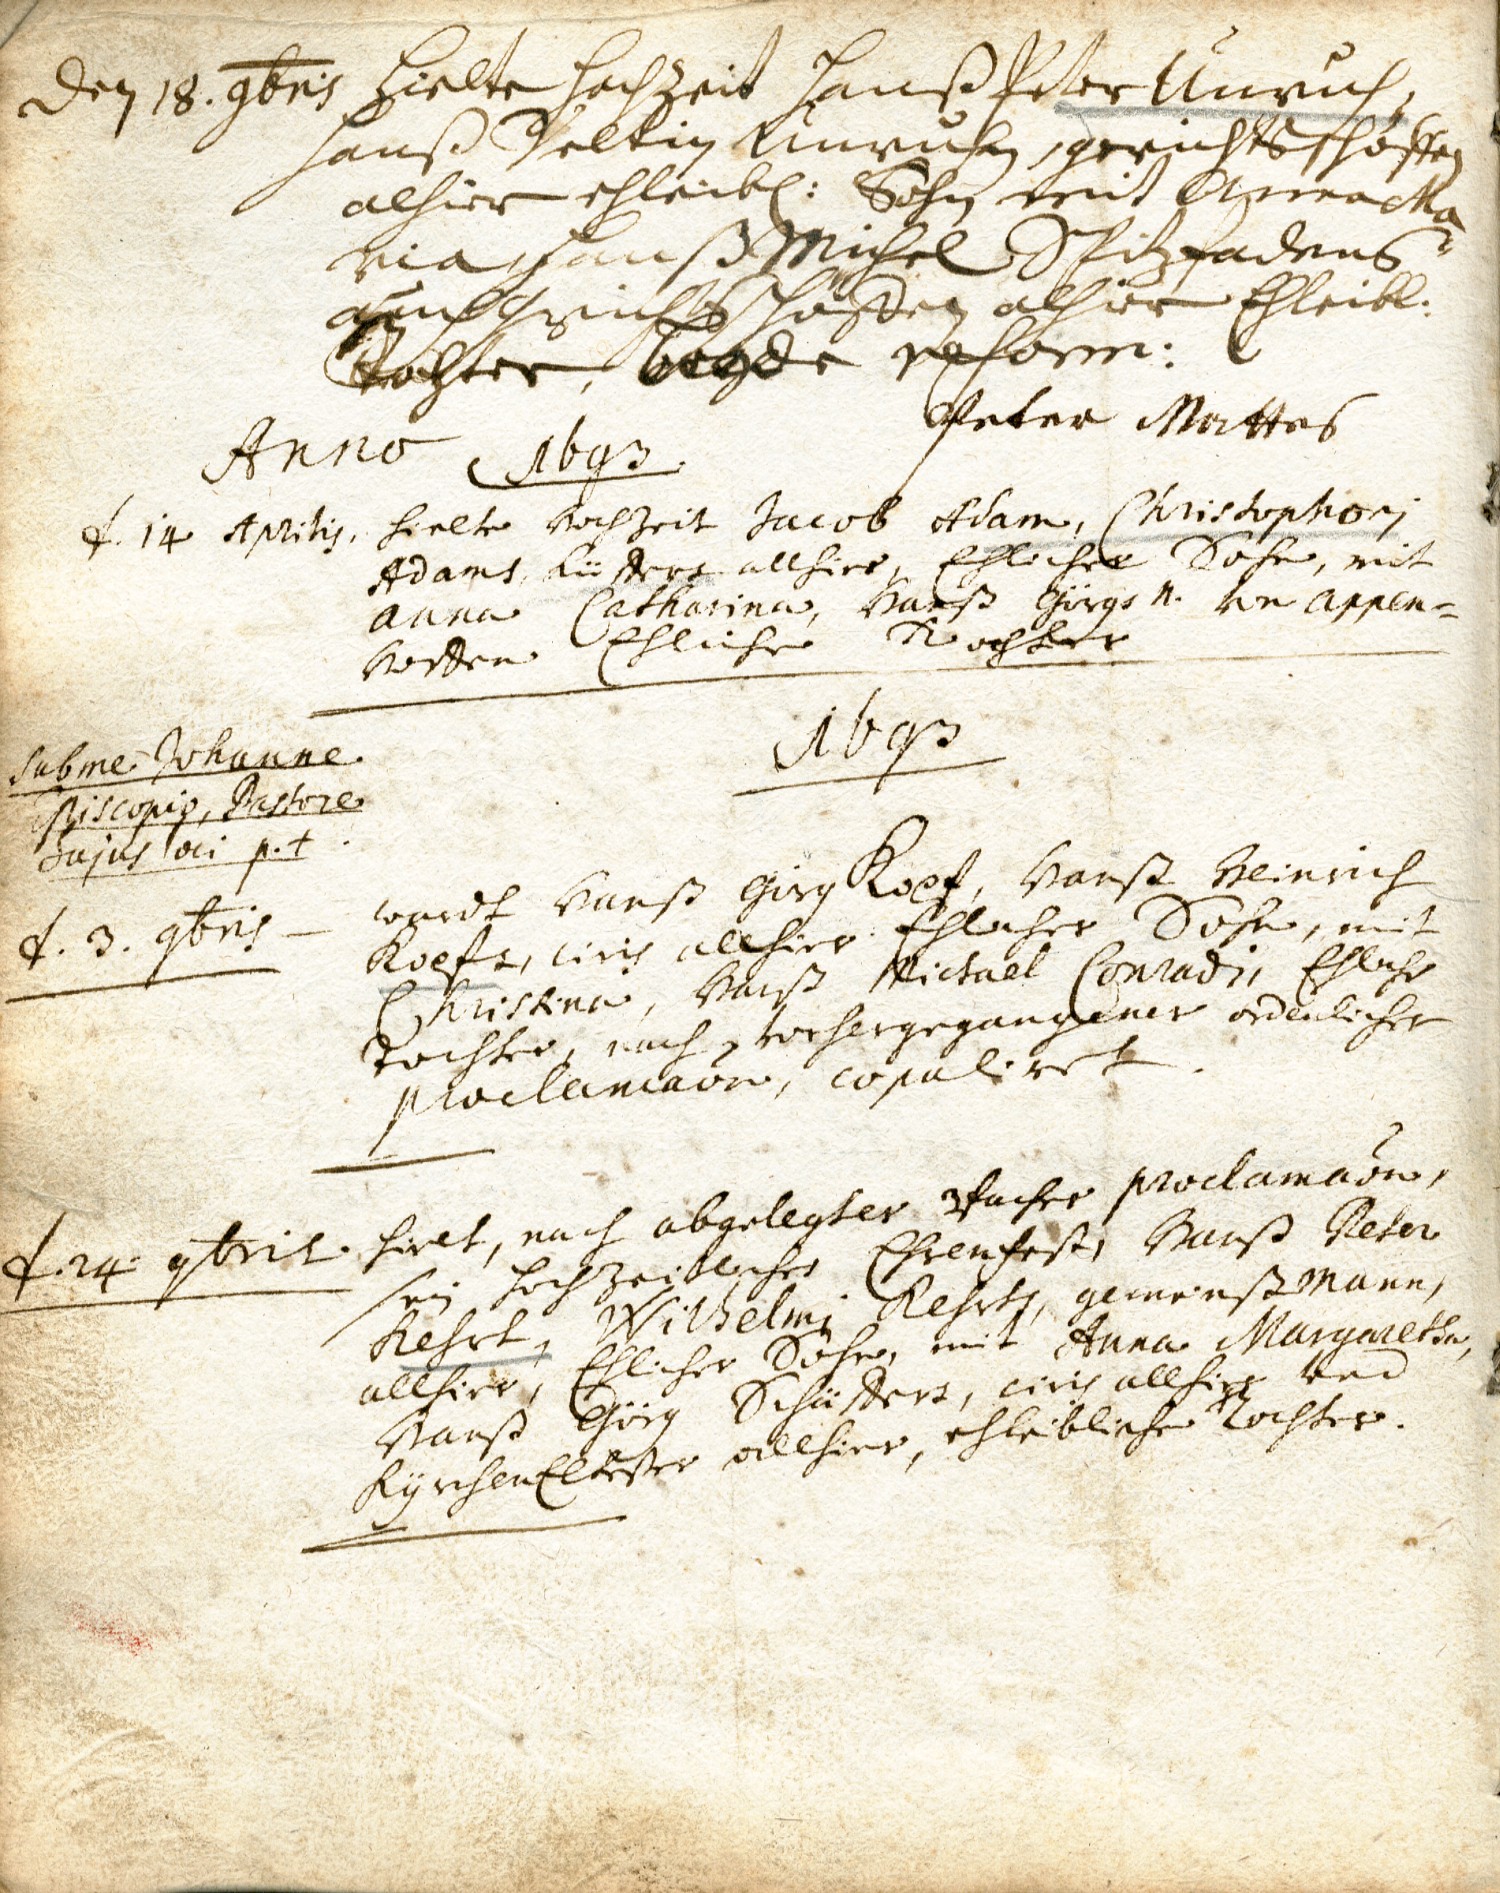 Den 18. 9bris hielte Hochzeit Hanß Peter Unruh,
Hanß Veltin Unruhen, gerichtsschöffen
alhier ehleibl: Sohn mit Anna Ma
ria, Hanß Michel Spitzfadens
auch Grichtsschöffen alhier Ehleibl.
Tochter, beyde reform:
Peter Mattes
Anno 1693.
d. 14 Aprilis, hielte Hochzeit Jacob Adam, Christophori
Adams, Küsters allhier, Ehlicher Sohn, mit
Anna Catharina, Hanß Görgs N. von Appen-
hoffen Ehliche Tochter
1693
sub me Johanne
Piscopio, Pastore
hujus loci p.t.
d. 3. 9bris – wardt Hanß Görg Kopf, Hanß Heinrich
Kopfs, civis allhier Ehlicher Sohn, mit
Christina, Hanß Michael Conradi, Ehliche
Tochter, nach vorhergegangener ordenlicher
proclamaõn, copuliret.
d. 24. 9bris hielt, nach abgelegter 3facher proclamaõn,
sein Hochzeitliches Ehrenfest, Hanß Peter
Kehrt, Wilhelmj Kehrts, gemeinßmann,
allhier, Ehlicher Sohn, mit Anna Margaretha,
Hanß Görg Schusters, civis allhier und
KyrchenEltester allhier, ehleibliche Tochter.